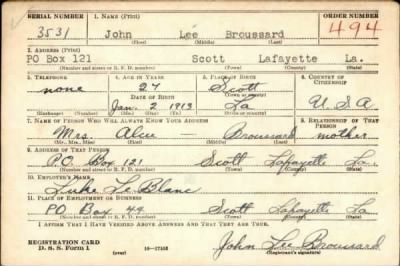 SERIAL NUMBER 1. NAME (Print) ORDER NUMBER
3531 John Lee Broussard 494
(First) (Middle) (Last)
2. ADDRESS (Print)
PO Box 121 Scott Lafayette La.
(Number and street or R. F. D. number) (Town) (County) (State)
3. TELEPHONE 4. AGE IN YEARS 5. PLACE OF BIRTH 6. COUNTRY OF CITIZENSHIP
none 27 Scott
DATE OF BIRTH (Town or county)
Jan. 2 1913 La U.S.A.
(Exchange) (Number) (Mo.) (Day) (Yr.) (State or country)
7. NAME OF PERSON WHO WILL ALWAYS KNOW YOUR ADDRESS 8. RELATIONSHIP OF THAT PERSON
Mrs. Alice — Broussard mother
(Mr., Mrs., Miss) (First) (Middle) (Last)
9. ADDRESS OF THAT PERSON
P.O. Box 121 Scott Lafayette La.
(Number and street or R. F. D. number) (Town) (County) (State)
10. EMPLOYER'S NAME
Luke Le Blanc
11. PLACE OF EMPLOYMENT OR BUSINESS
PO Box 44 Scott Lafayette La.
(Number and street or R. F. D. number) (Town) (County) (State)
I AFFIRM THAT I HAVE VERIFIED ABOVE ANSWERS AND THAT THEY ARE TRUE.
REGISTRATION CARD
D. S. S. Form 1 John Lee Broussard
(Registrant's signature)